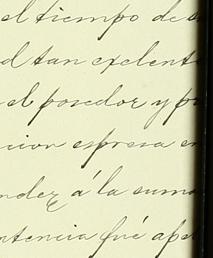 el tiempo de
d tan exelente
el posedor y p
cion espresa en
ndez á la suma
ntencia fué apel